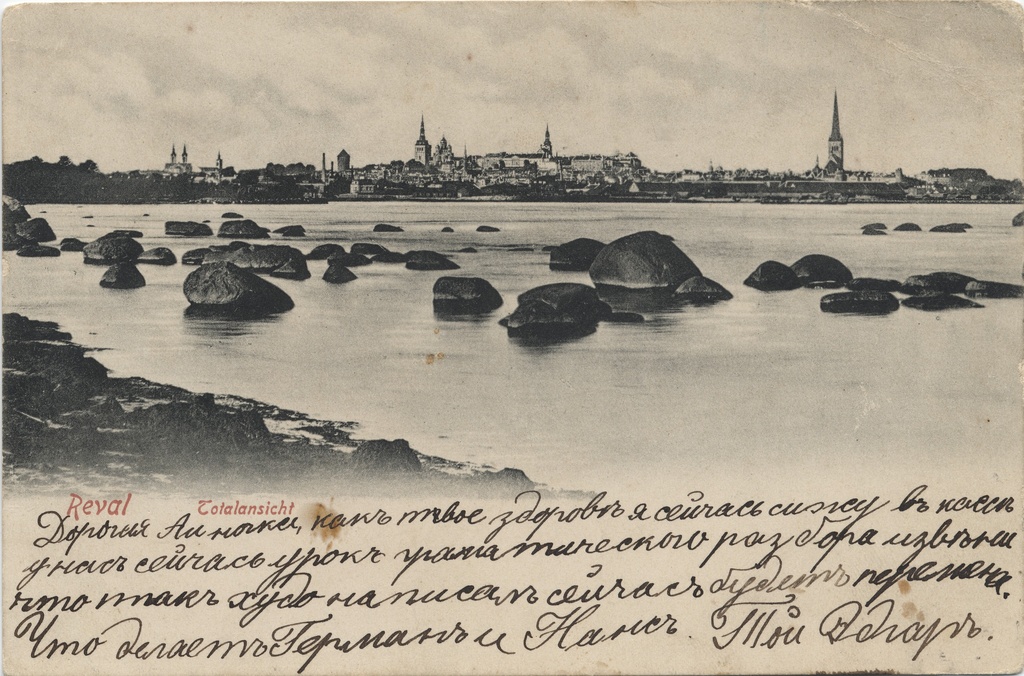 Reval Totalansicht
Дорогая Аиночка, какъ твое здоровъ я сейчасъ сижу въ класѣ
у насъ сейчасъ урокъ граматического разбора извѣни
что такъ худо написалъ сейчасъ будетъ перемена.
Что делаетъ Германъ и Хансъ. Твой Эдгаръ.